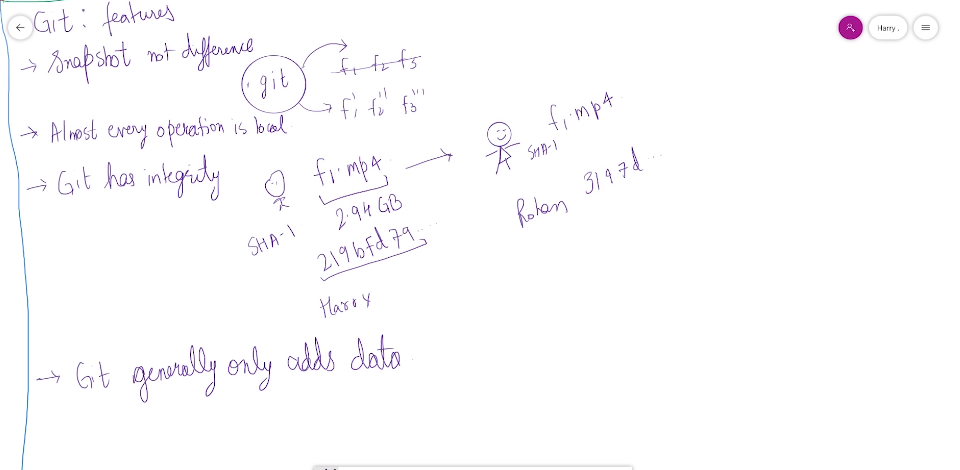 Git: features
Harry .
→ Snapshot not difference
git
f1 f2 f3
f1' f2'' f3'''
→ Almost every operation is local
→ Git has integrity
f1.mp4
2.94 GB
SHA-1
219bfd79..
Harry
f1.mp4
SHA-1
3197d...
Rohan
→ Git generally only adds data